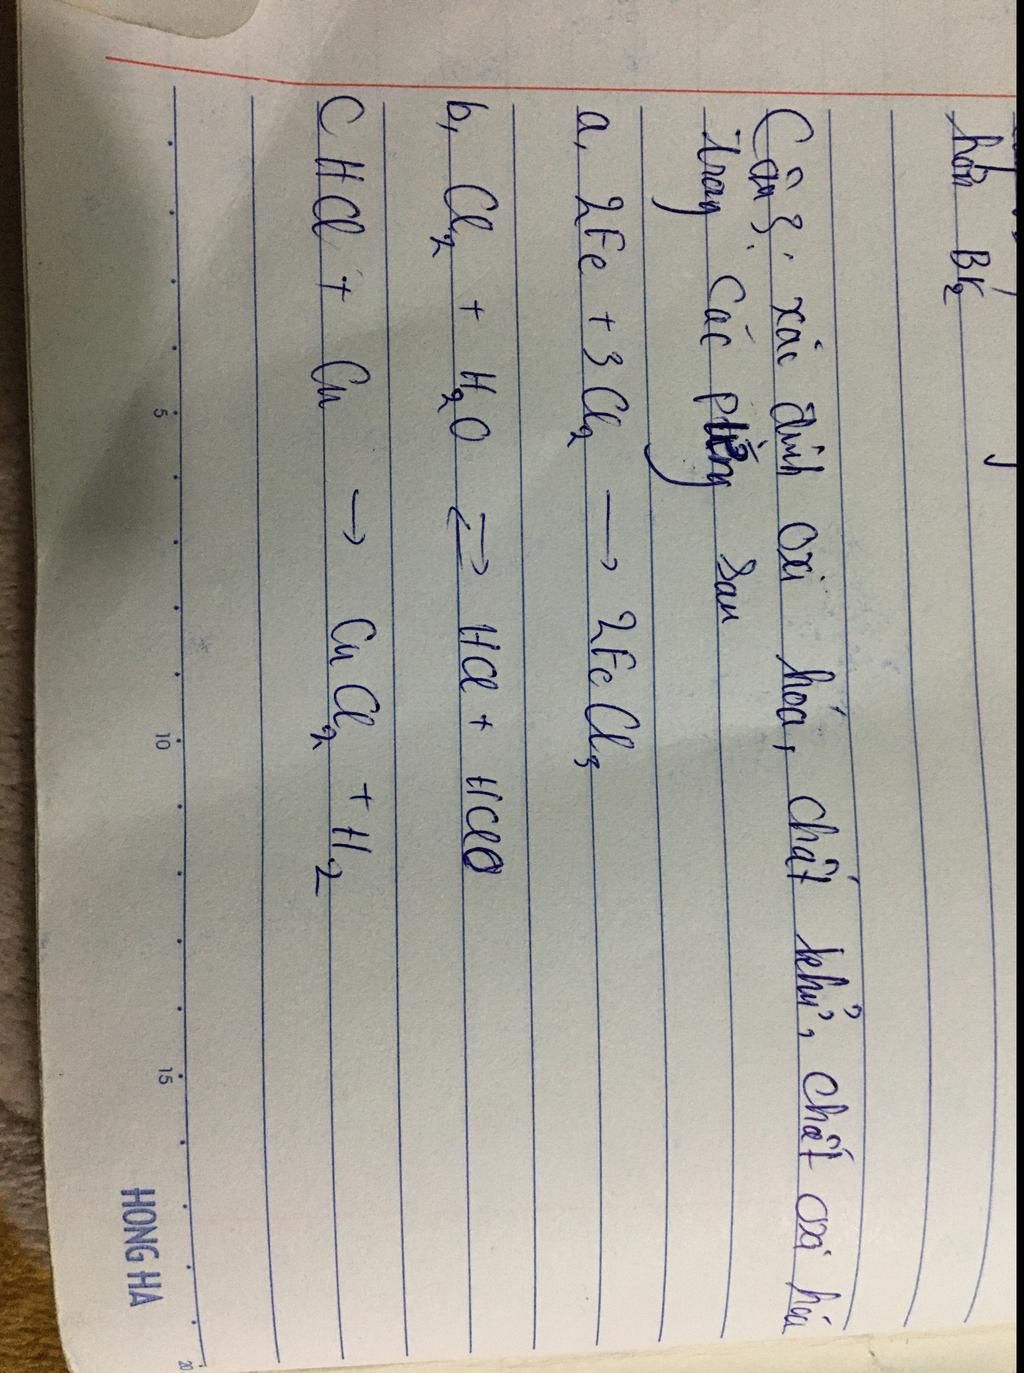 hơn Br2
Câu 3. xác định oxi hóa, chất khử, chất oxi hóa
trong các pứng sau
a, 2Fe + 3Cl2 → 2FeCl3
b, Cl2 + H2O ⇌ HCl + HClO
C HCl + Cu → CuCl2 + H2
5 10 15 20
HONG HA